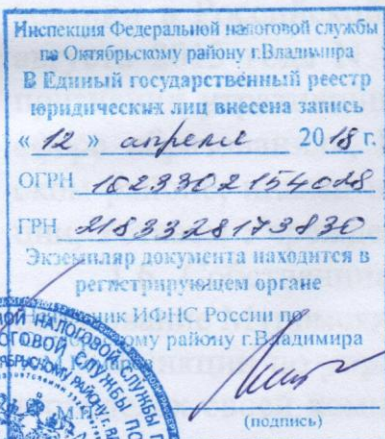 Инспекция Федеральной налоговой службы
по Октябрьскому району г.Владимира
В Единый государственный реестр
юридических лиц внесена запись
« 12 » апреля 2018 г.
ОГРН 1023302154028
ГРН 2183328173830
Экземпляр документа находится в
регистрирующем органе
ИФНС России по
району г.Владимира
М.П.
(подпись)
НАЛОГОВОЙ СЛУЖБЫ
РАЙОНУ Г.